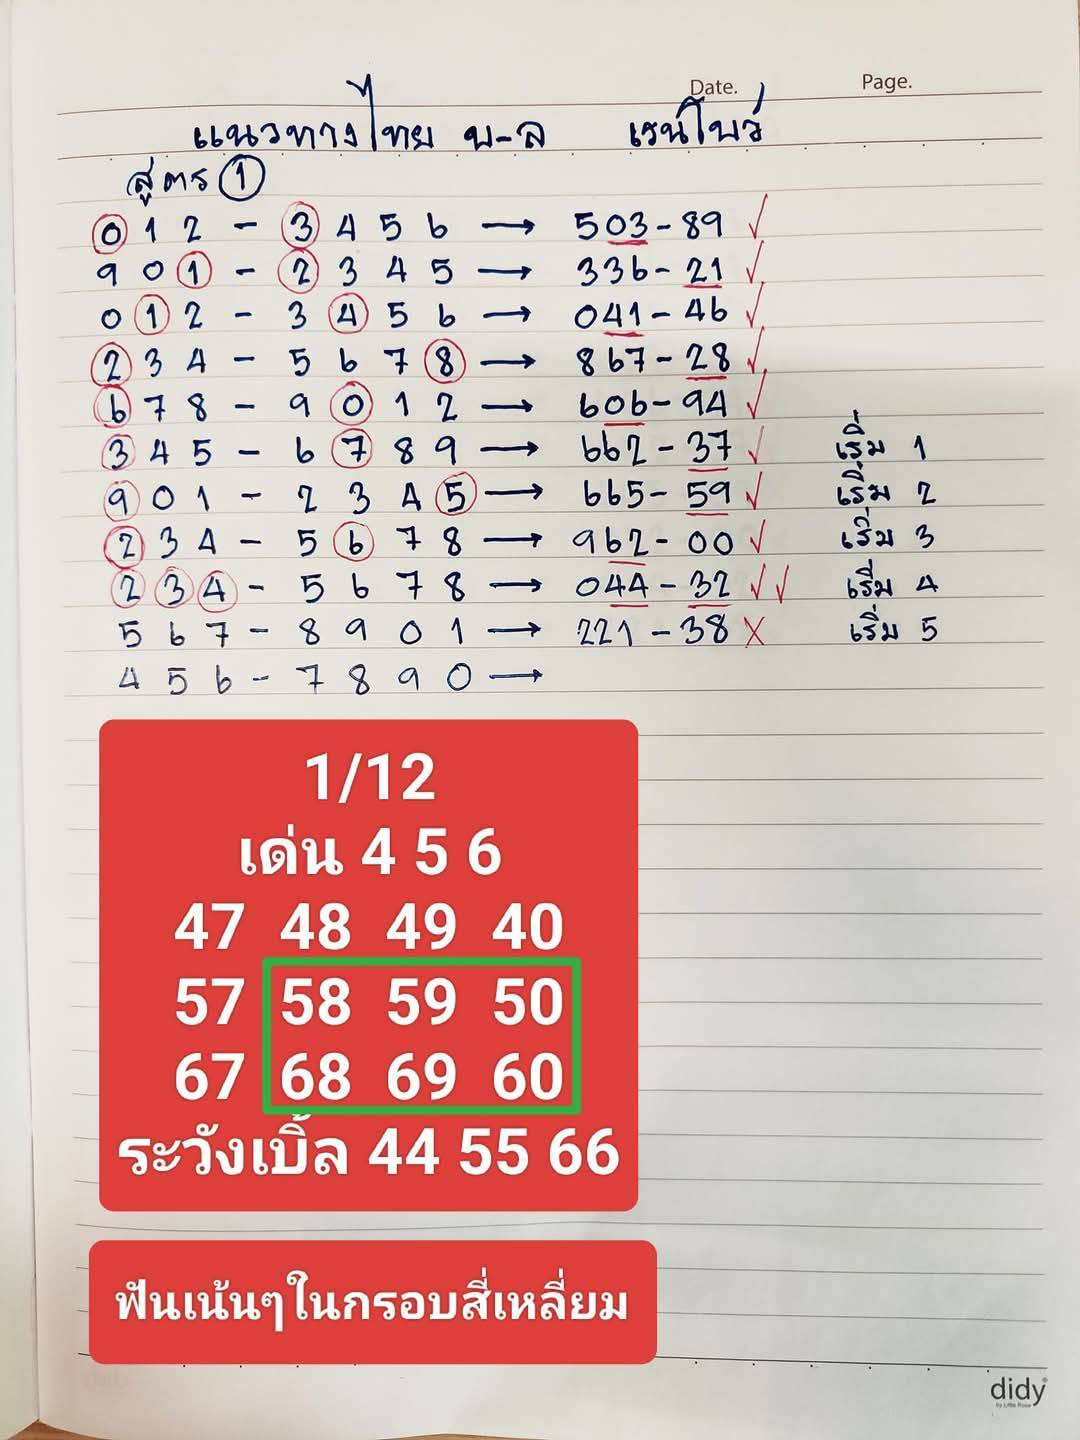 Date. Page.
แนวทางไทย บ-ล เรนโบว์
สูตร 1
0 1 2 - 3 4 5 6 → 503-89 ✓
9 0 1 - 2 3 4 5 → 336-21 ✓
0 1 2 - 3 4 5 6 → 041-46 ✓
2 3 4 - 5 6 7 8 → 867-28 ✓
6 7 8 - 9 0 1 2 → 606-94 ✓
3 4 5 - 6 7 8 9 → 662-37 ✓ เริ่ม 1
9 0 1 - 2 3 4 5 → 665-59 ✓ เริ่ม 2
2 3 4 - 5 6 7 8 → 962-00 ✓ เริ่ม 3
2 3 4 - 5 6 7 8 → 044-32 ✓✓ เริ่ม 4
5 6 7 - 8 9 0 1 → 221-38 X เริ่ม 5
4 5 6 - 7 8 9 0 →
1/12
เด่น 4 5 6
47 48 49 40
57 58 59 50
67 68 69 60
ระวังเบิ้ล 44 55 66
ฟันเน้นๆในกรอบสี่เหลี่ยม
didy